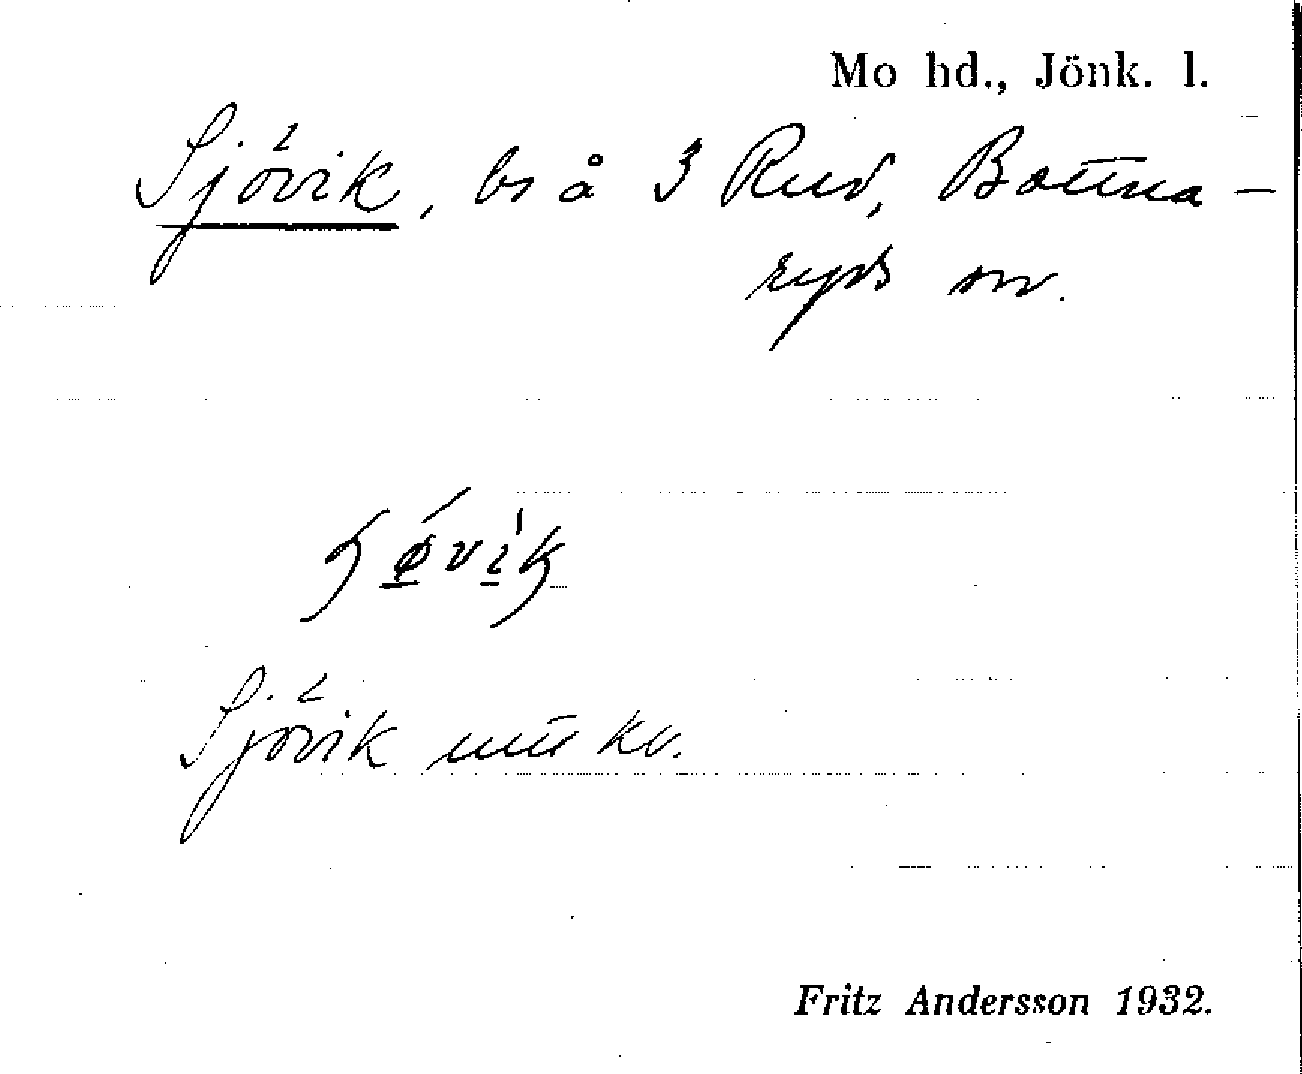 Mo hd., Jönk. l.
Sjövik, bs å 3 Rud, Bottna-
ryds sn.
Sjövik kv.
Fritz Andersson 1932.